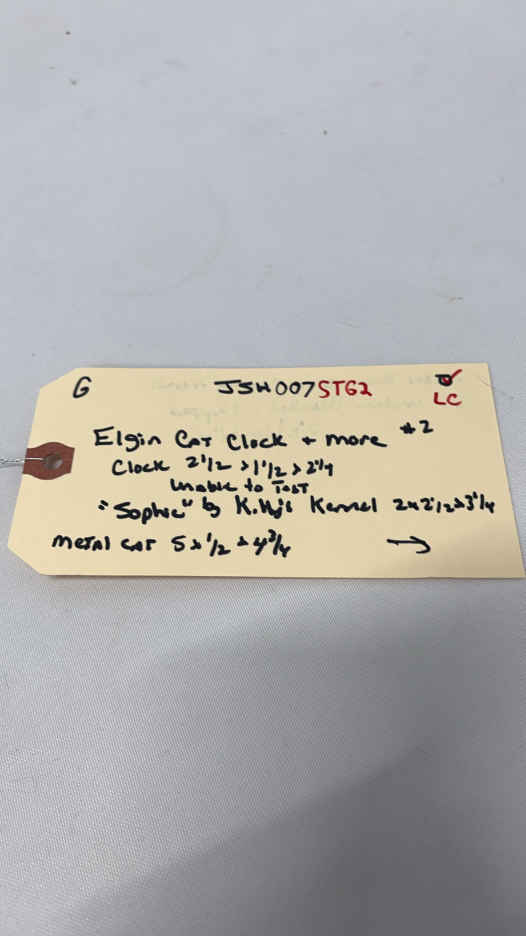 G JSH007STG2
LC
Elgin Cat Clock + more #2
Clock 2 1/2 x 1 1/2 x 2 1/4
unable to Test
"Sophie" by Kennel 2x2 1/2x3 1/4
metal cat 5 x 1/2 x 4 3/4 →